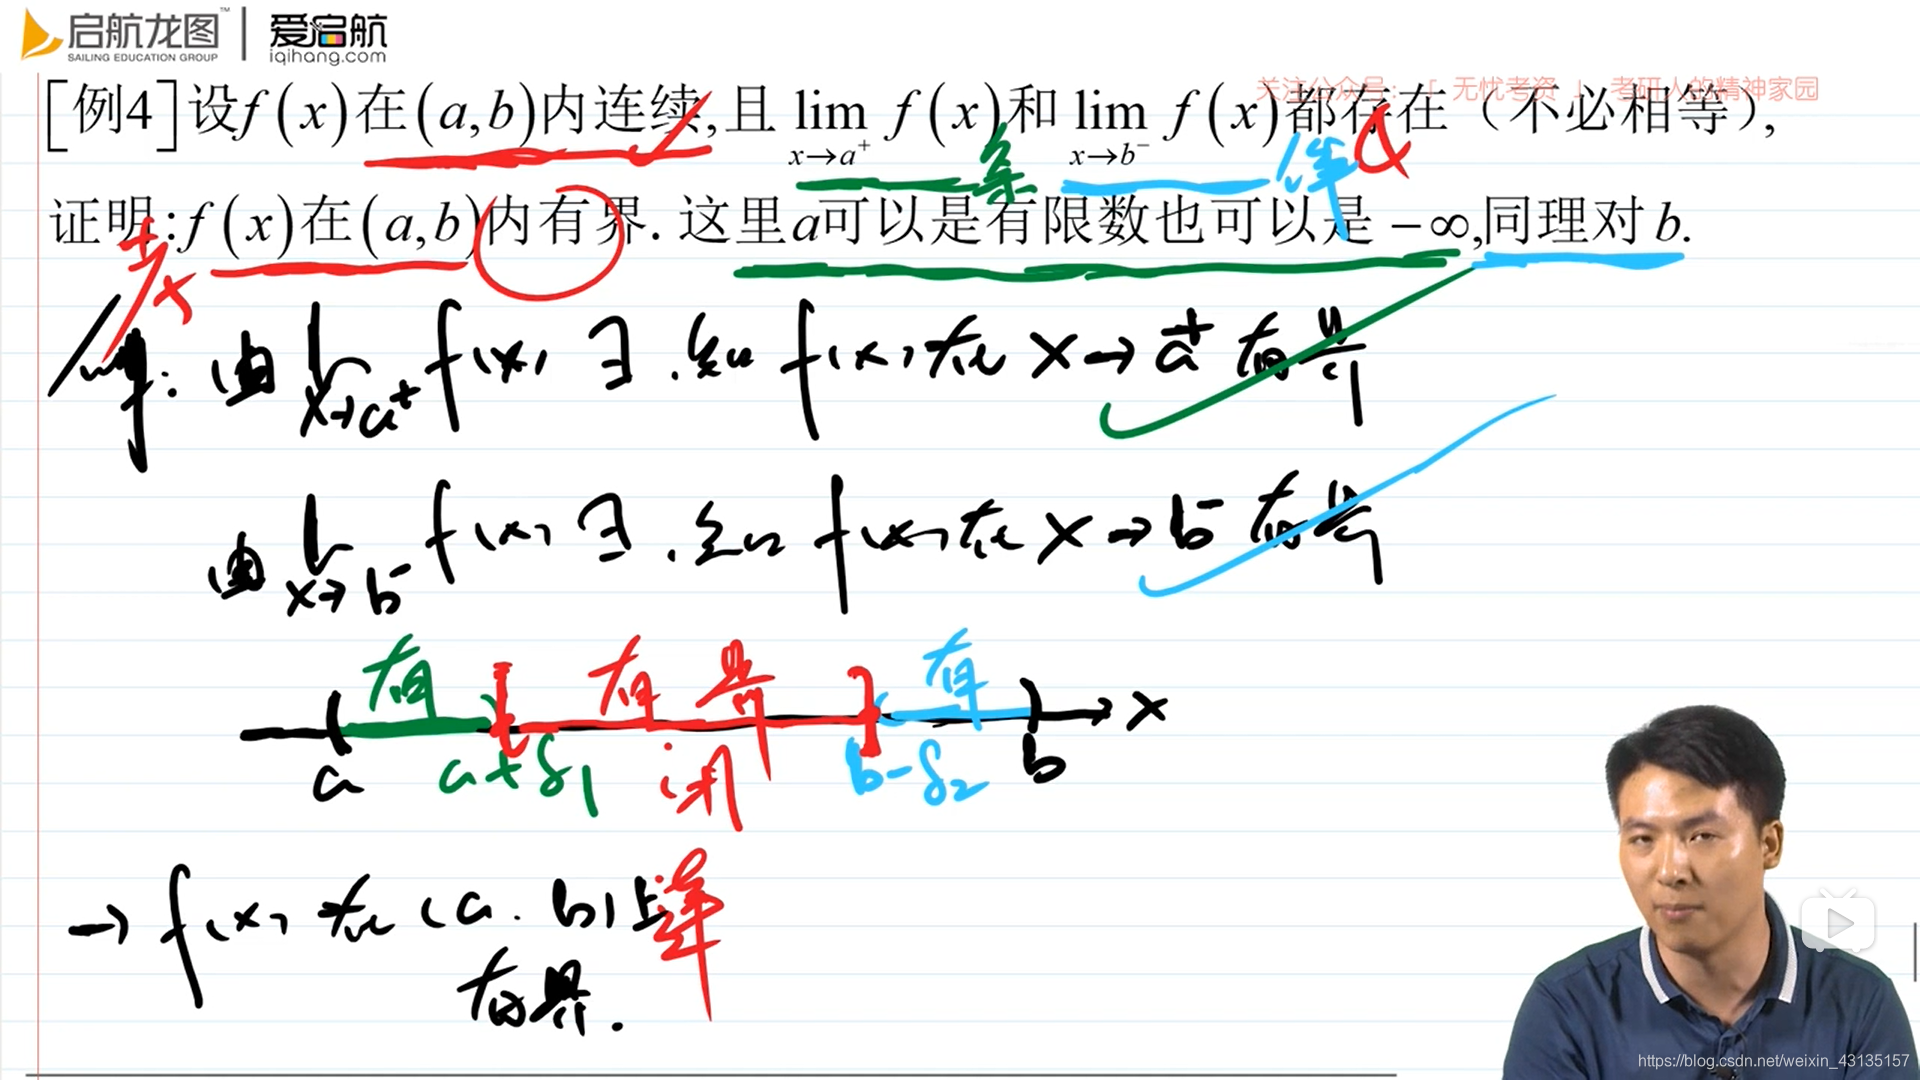 启航龙图™ | 爱启航
SAILING EDUCATION GROUP iqihang.com
关注公众号：「 无忧考资 」 考研人的精神家园
[例4]设f(x)在(a,b)内连续,且 lim f(x)和 lim f(x)都存在（不必相等）,
x→a⁺ x→b⁻
条 件
证明:f(x)在(a,b)内有界. 这里a可以是有限数也可以是 −∞,同理对 b.
解: 由 lim x→a⁺ f(x) ∃. 知 f(x) 在 x→a⁺ 有界
由 lim x→b⁻ f(x) ∃. 知 f(x) 在 x→b⁻ 有界
有 有界 有
a a+δ₁ 闭 b-δ₂ b x
→ f(x) 在 (a. b) 上
有界.
https://blog.csdn.net/weixin_43135157